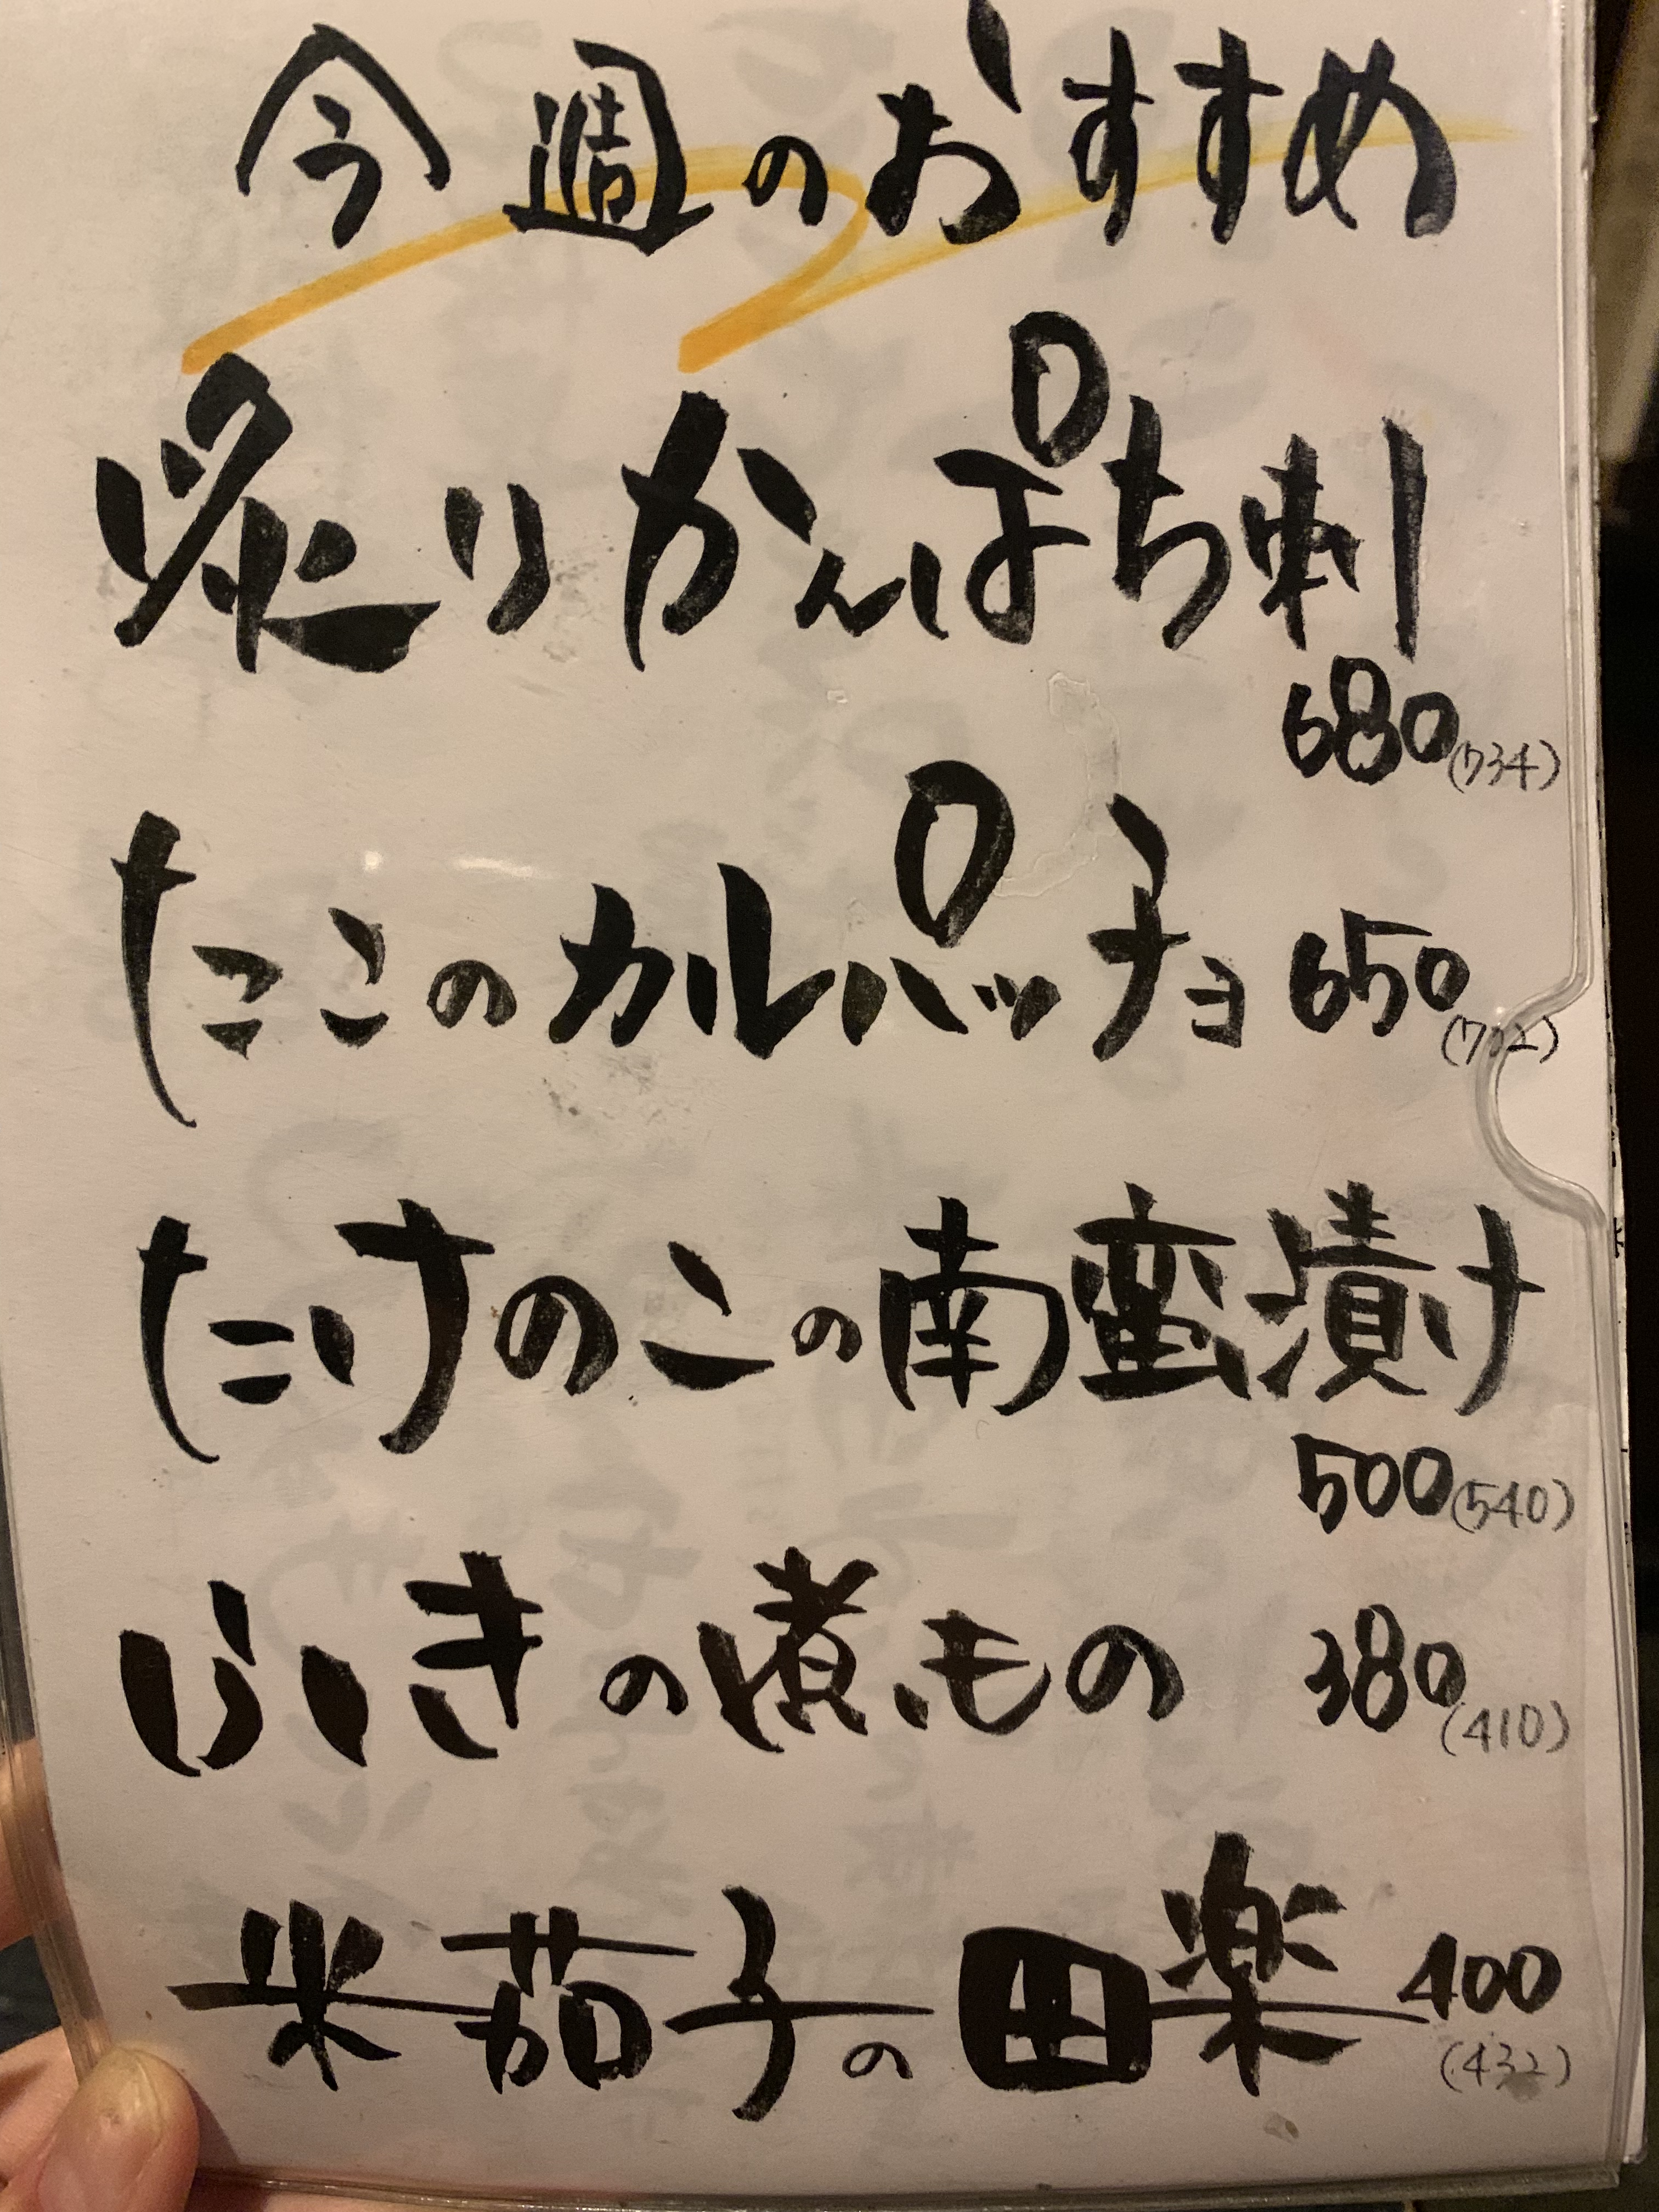 今週のおすすめ
炙りかんぱち刺
680(734)
たこのカルパッチョ 650
(702)
たけのこの南蛮漬け
500(540)
ふきの煮もの 380
(410)
米茄子の田楽 400
(432)